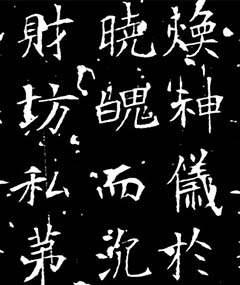 煥神儀於
曉魄而沉
財坊私苐